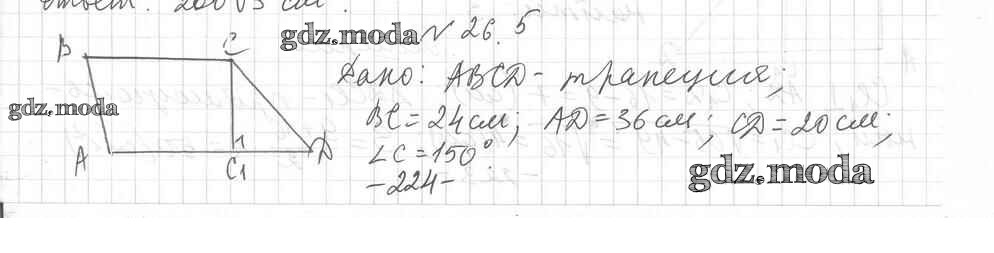 Ответ: 200√3 см².
gdz.moda № 26.5
B C
Дано: ABCD - трапеция;
gdz.moda
BC = 24 см; AD = 36 см; CD = 20 см;
A C₁ D
∠C = 150°.
gdz.moda
-224-